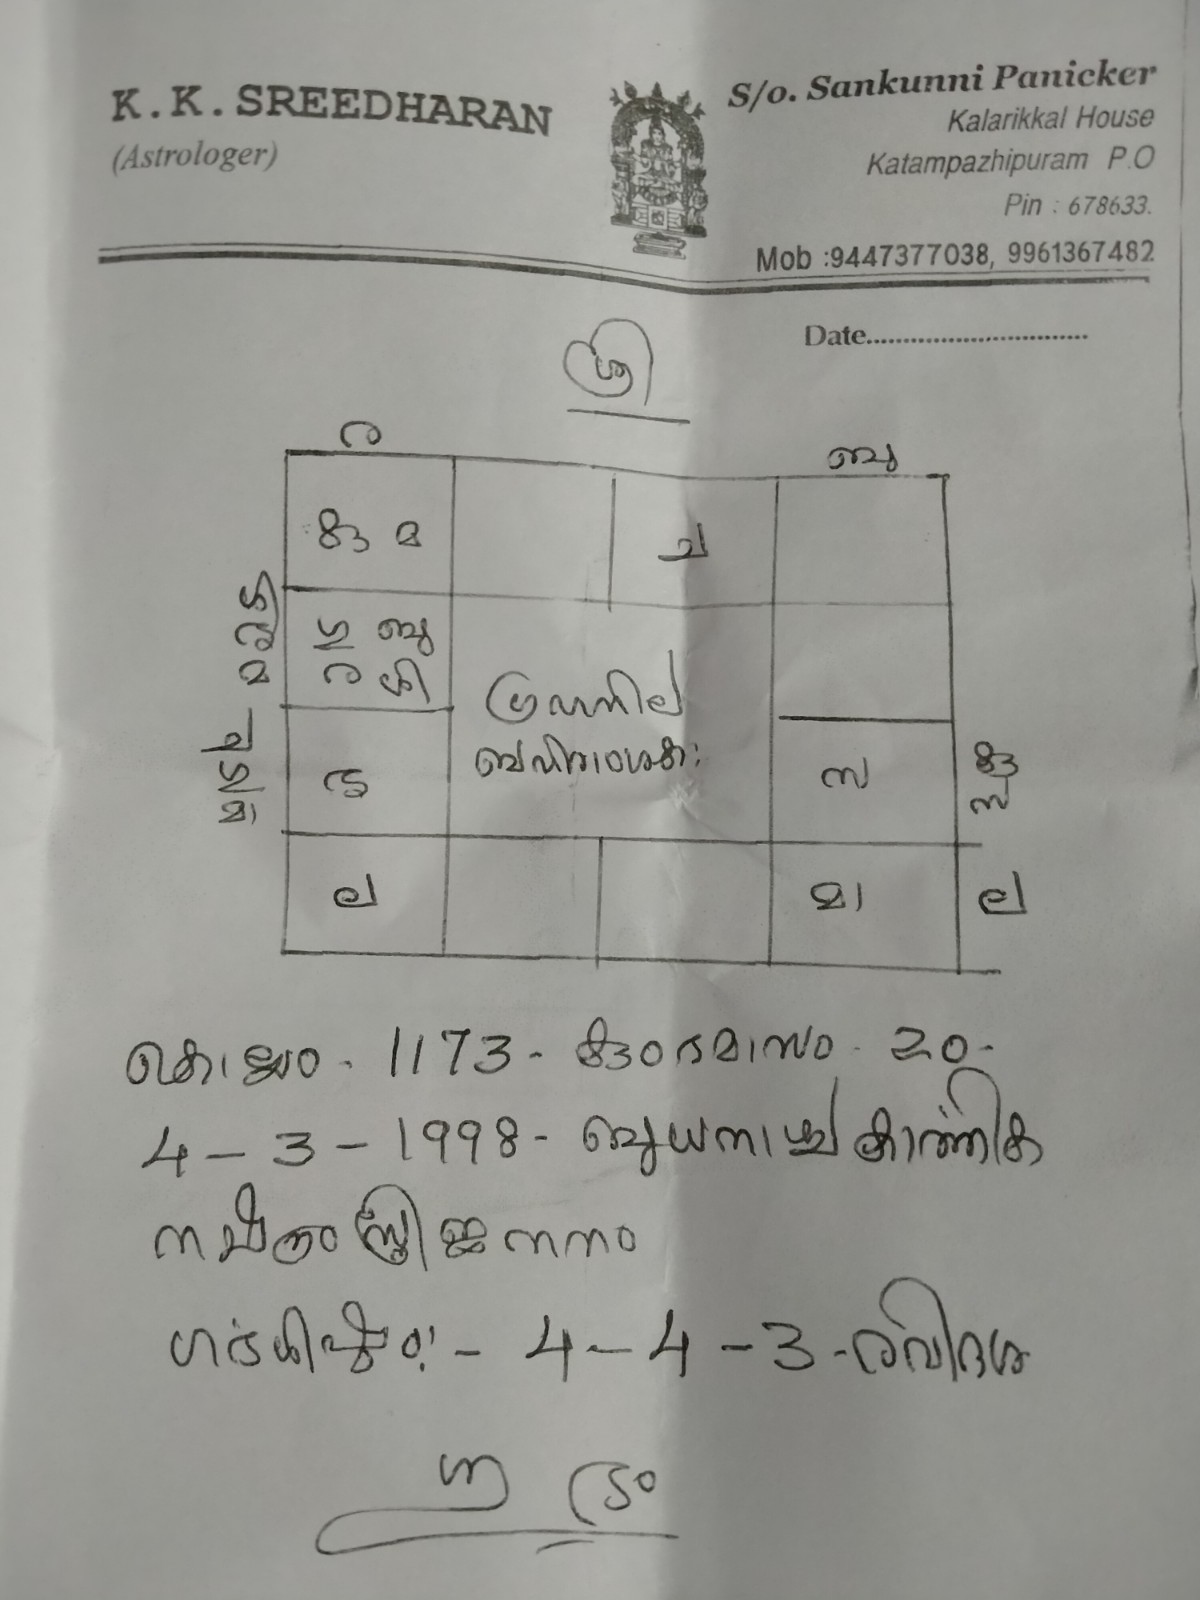 K.K.SREEDHARAN
(Astrologer)
S/o. Sankunni Panicker
Kalarikkal House
Katampazhipuram P.O
Pin : 678633.
Mob :9447377038, 9961367482
Date..............................
ശ്രീ
ര
ബു
കു മ
ച
ഗു ബു
ര ശി
ഗു
ര
മ
ശു
ഗ്രഹനില
സ
കു
സ
മാ
ല
മാ
ല
കൊല്ലം - 1173 - കുംഭമാസം - 20 -
4 - 3 - 1998 - ബുധനാഴ്ച കാർത്തിക
നക്ഷത്രം സ്ത്രീ ജനനം
ഗർഭശിഷ്ടം: - 4 - 4 - 3 - രവിദശ
ശുഭം